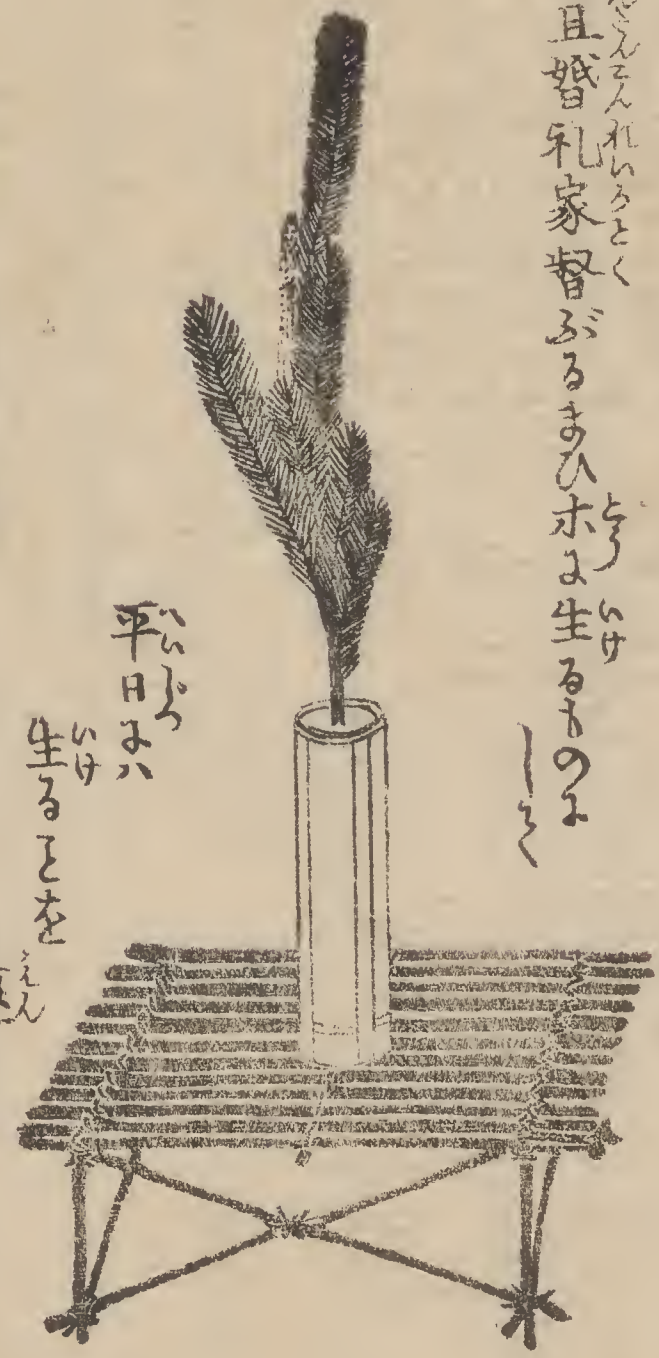 且婚礼家督ぶるまひホに生るものに
して
平日にハ
生ることを